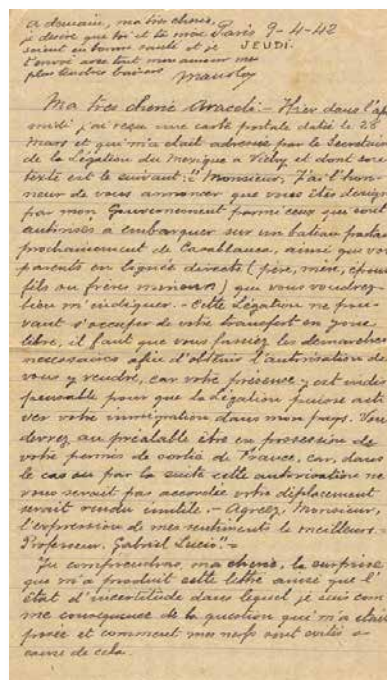 a demain, ma très cherie,
je desire que toi et ta mère Paris 9-4-42
soient en bonne santé et je JEUDI.
t'envoi avec tout mon amour mes
plus tendres baisers
Manolo
Ma tres cherie Araceli:- Hier dans l'ap
midi j'ai reçu une carte postale datée le 28
Mars et qui m'a était adressée par le Secretaire
de la Légation du Mexique a Vichy et dont son
texte est le suivant: "Monsieur, J'ai l'hon-
neur de vous annoncer que vous êtes designé
par mon Gouvernement parmi ceux que sont
autorisés a embarquer sur un bateau partan
prochainement de Casablanca, ainsi que vos
parents en lignée directe (père, mère, épouse
fils ou frères mineurs) que vous voudrez
bien m'indiquer. - Cette Légation ne pou-
vant s'occuper de votre transfert en zone
libre, il faut que vous fassiez les demarches
necessaires afin d'obtenir l'autorisation de
vous y rendre, car votre présence y est indis
pensable pour que la Légation puisse acti
ver votre immigration dans mon pays. Vous
devrez au préalable être en possession de
votre permis de sortie de France, car, dans
le cas ou par la suite cette autorisation ne
vous serait pas accordée votre déplacement
serait rendu inutile. - Agréez, Monsieur,
l'expression de mes sentiments le meilleurs.-
Professeur, Gabriel Lucio".-
Tu comprendras, ma cherie, la surprise
que m'a produit cette lettre ainsi que l'
état d'incertitude dans lequel je suis com
me consequence de la question qui m'a était
posée et comment mes nerfs sont
cause de cela.